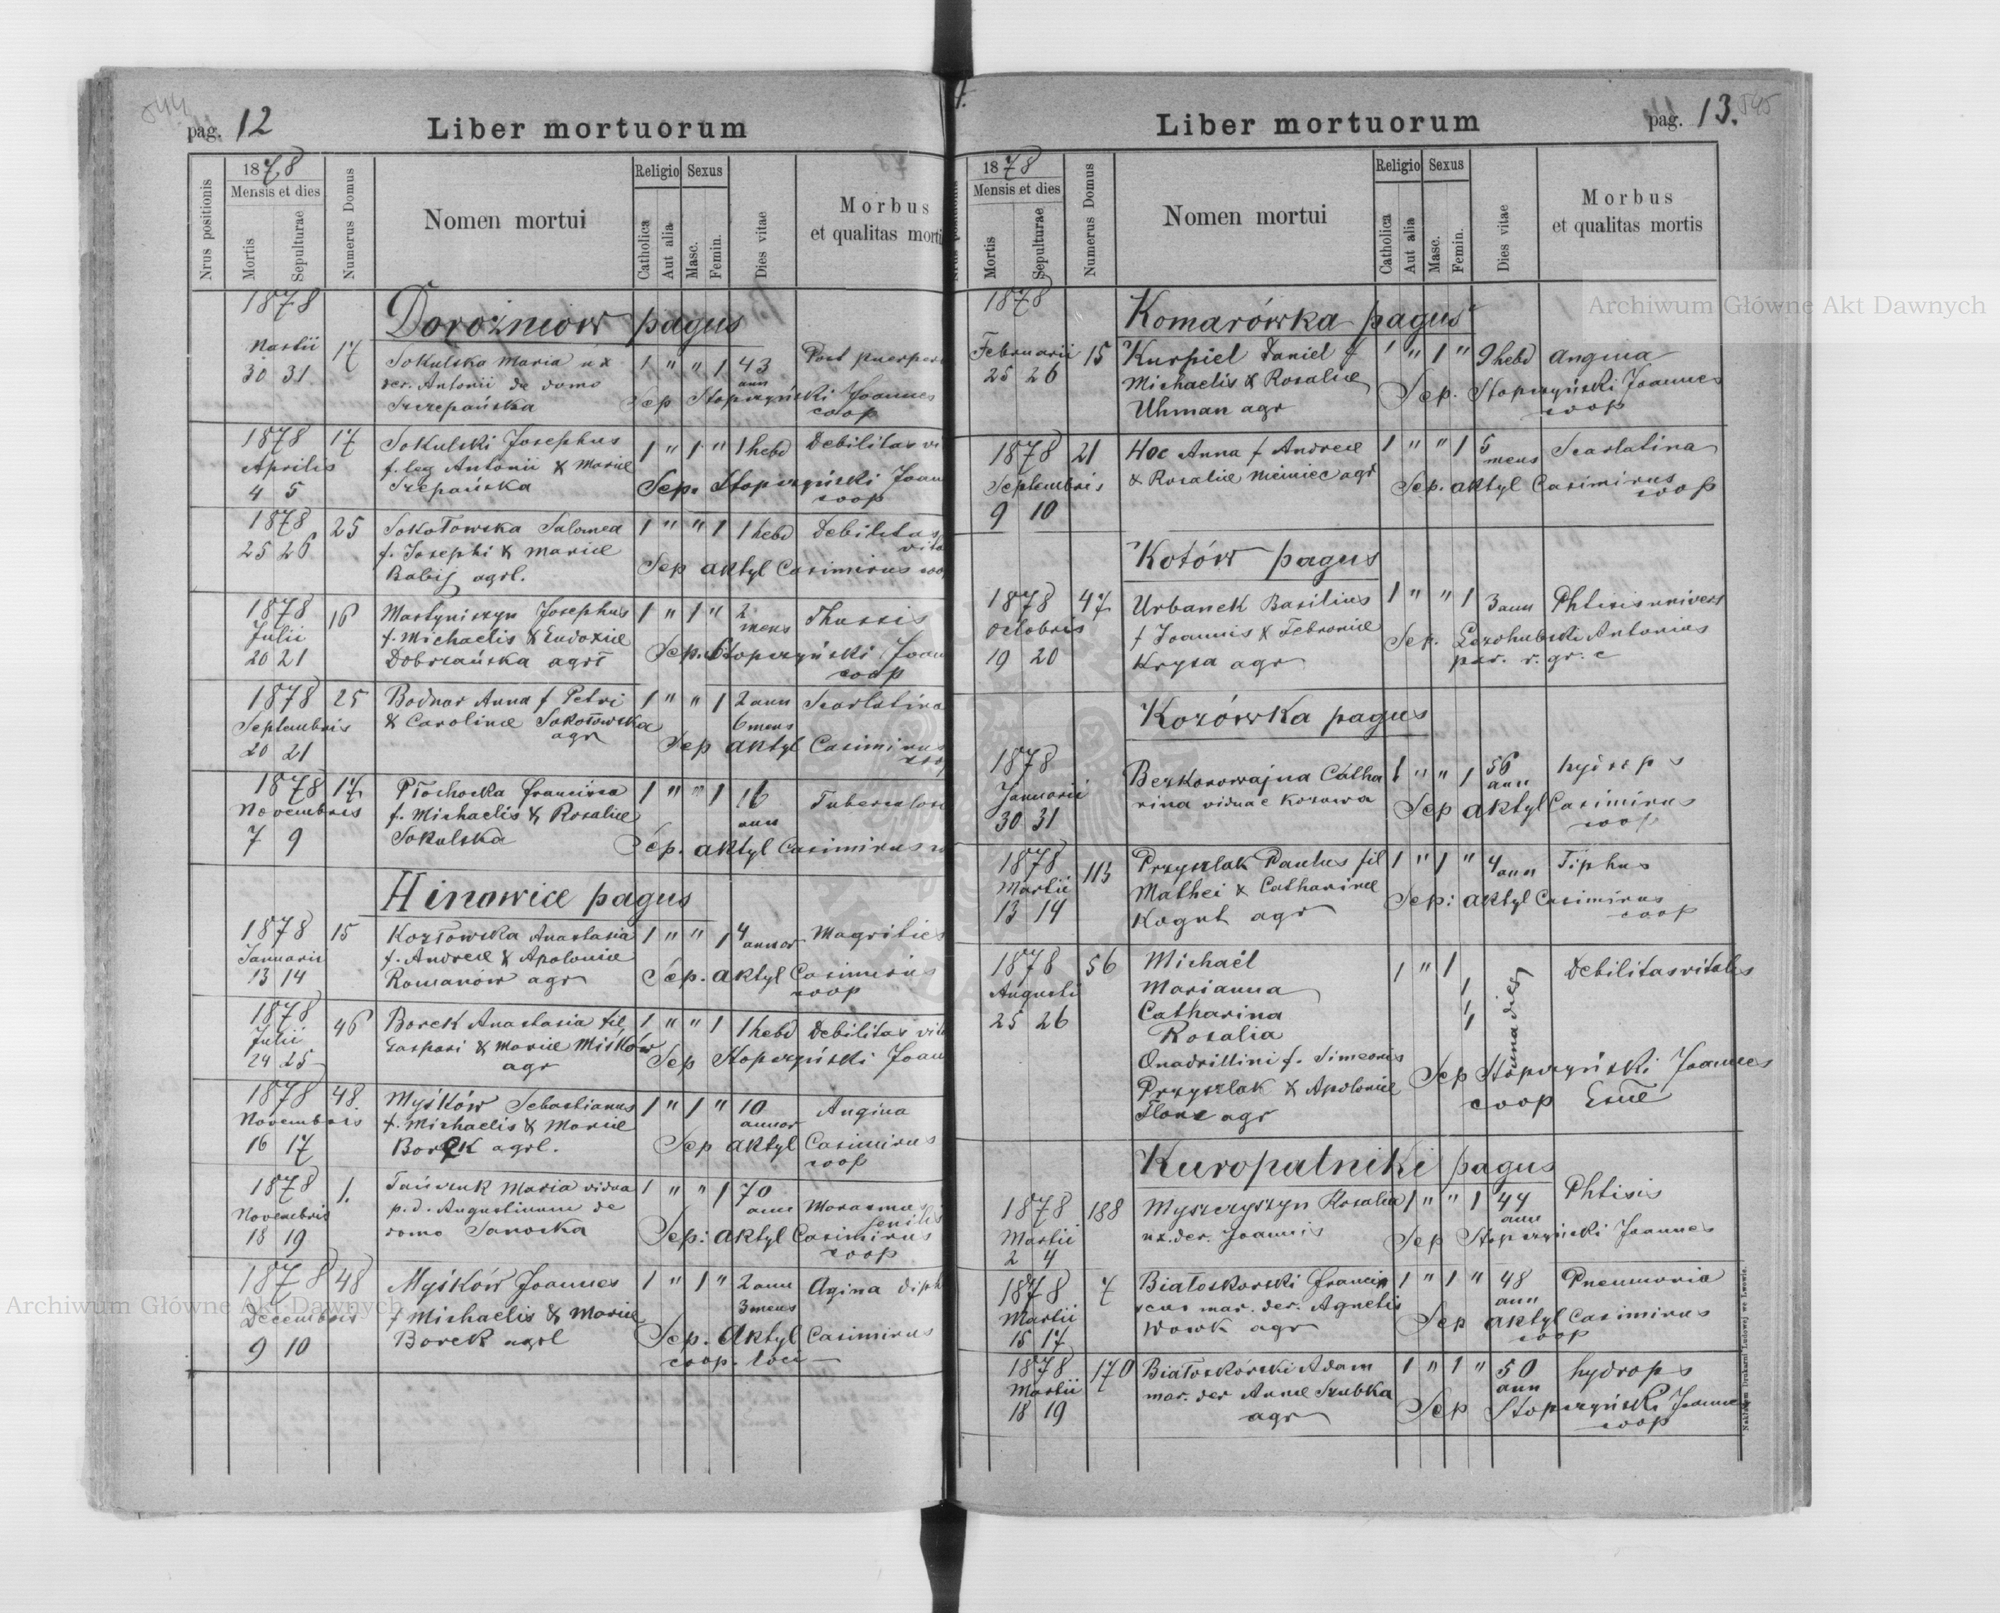 pag. 12
Liber mortuorum
Nrus positionis
1878
Mensis et dies
Mortis
Sepulturae
Numerus Domus
Nomen mortui
Religio
Catholica
Aut alia
Sexus
Masc.
Femin.
Dies vitae
Morbus
et qualitas morti
1878
Dorożniow pagus
Martii 17 Sokulska Maria ux 1 " " 1 43 Post puerper
30 31 der. Antonii de domo ann
Szczepańska Sep Stopczyński Joannes
coop
1878 17 Sokulski Josephus 1 " 1 " 1 hebd Debilitas vi
Aprilis f. leg Antonii & Mariæ
4 5 Szepańska Sep. Stopczyński Joan
coop
1878 25 Sokołowska Salomea 1 " " 1 1 hebd Debilitas
25 26 f. Josephi & Mariæ vita
Babij agrl. Sep aktyl Casimirus coop
1878 16 Martyniszyn Josephus 1 " 1 " 2 Thussis
Julii f. Michaelis & Eudoxiæ mens
20 21 Dobrzańska agrl Sep. Stopczyński Joan
coop
1878 25 Bodnar Anna f Petri 1 " " 1 2 ann Scarlatina
Septembris & Carolinæ Sokołowska 6 mens
20 21 agr Sep aktyl Casimirus
coop
1878 17 Płochocka Francisca 1 " " 1 16 Tuberculos
Novembris f. Michaelis & Rosaliæ ann
7 9 Sokulska Sep. aktyl Casimirus
Hinowice pagus
1878 15 Kozłowska Anastasia 1 " " 1 4 Magrities
Januarii f. Andreæ & Apoloniæ annor
13 14 Romanów agr Sep. aktyl Casimirus
coop
1878 46 Borek Anastasia fil 1 " " 1 1 hebd Debilitas vit
Julii Gaspari & Mariæ Miśków
24 25 agr Sep Stopczyński Joan
1878 48. Myśków Sebastianus 1 " 1 " 10 Angina
Novembris f. Michaelis & Mariæ annor
16 17 Borek agrl. Sep aktyl Casimirus
coop
1878 1. Maria vidua 1 " " 1 70 Marasmus
Novembris p. d. Augustinum de ann senilis
18 19 domo Sanocka Sep: aktyl Casimirus
coop
1878 48 Myśków Joannes 1 " 1 " 2 ann Agina diph
Decembris f Michaelis & Mariæ 3 mens
9 10 Borek agrl Sep. aktyl Casimirus
coop. loci
pag. 13.
545
Liber mortuorum
1878
Mensis et dies
Mortis
Sepulturae
Numerus Domus
Nomen mortui
Religio
Catholica
Aut alia
Sexus
Masc.
Femin.
Dies vitae
Morbus
et qualitas mortis
1878
Komarówka pagus
Februarii 15 Kurpiel Daniel f 1 " 1 " 9 hebd angina
25 26 Michaelis & Rosaliæ Sep. Stopczyński Joannes
Uhman agr coop
1878 21 Hoc Anna f Andreæ 1 " " 1 5 Scarlatina
Septembris & Rosaliæ Meiniec agr mens
9 10 Sep. aktyl Casimirus
coop
Kotów pagus
1878 47 Urbanek Basilius 1 " " 1 3 ann Phtisis univers
Octobris f Joannis & Febroniæ Sep. Antonius
19 20 Krysa agr par. r. gr. c
Kozówka pagus
1878 Bezkorowajna Catha 1 " " 1 56 hydrops
Januarii rina vidua e Kozowa ann
30 31 Sep aktyl Casimirus
coop
1878 113 Przyszlak Paulus fil 1 " 1 " 4 ann Tiphus
Martii Mathei & Catharinæ
13 14 Kogut agr Sep: aktyl Casimirus
coop
1878 56 Michaël 1 " 1 Debilitas vitales
Augusti Marianna 1
25 26 Catharina 1
Rosalia 1
una dies
Quadrillini f. Simeonis
Przyszlak & Apoloniæ Sep Stopczyński Joannes
agr coop
Kuropatniki pagus
1878 188 Myszczyszyn Rosalia 1 " " 1 44 Phtisis
Martii ux. der. Joannis ann
2 4 Sep Stopczyński Joannes
1878 7 Białoskorski Francis 1 " 1 " 48 Pneumonia
Martii cus mar. der. Agnetis ann
15 17 Wowk agr Sep aktyl Casimirus
coop
1878 170 Białoskórski Adam 1 " 1 " 50 hydrops
Martii mar. der Annæ Szubka ann
18 19 agr Sep Stopczyński Joannes
coop
Nakładem Drukarni Ludowej we Lwowie.
Archiwum Główne Akt Dawnych
Archiwum Główne Akt Dawnych